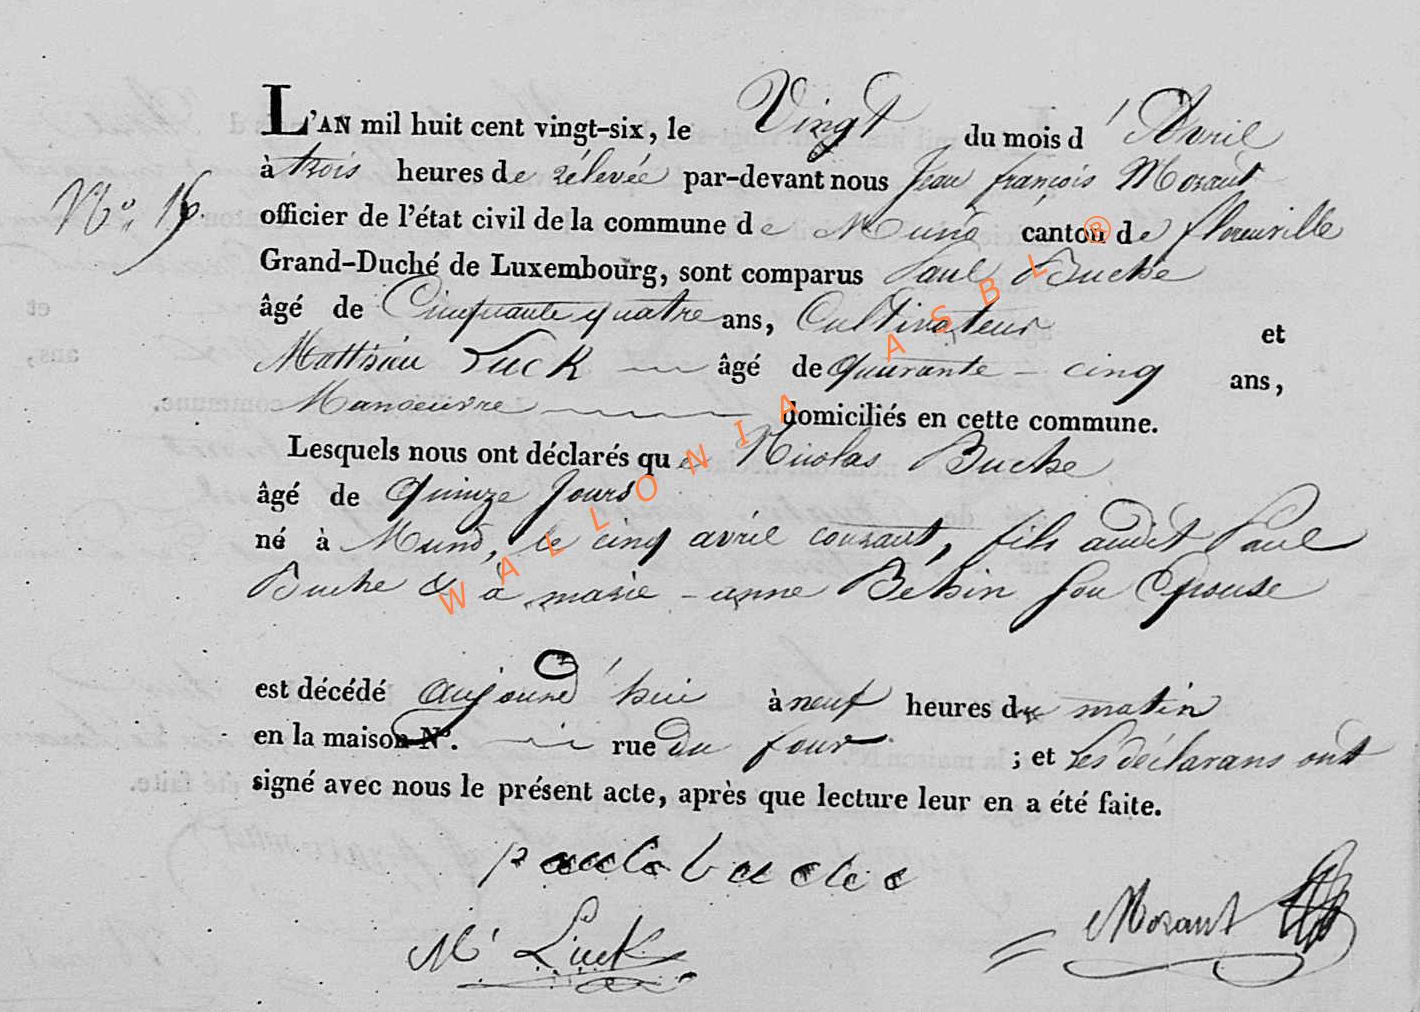 L'AN mil huit cent vingt-six, le Vingt du mois d'Avril
à trois heures de rélevée par-devant nous Jean françois Mozaut
N° 16. officier de l'état civil de la commune de Muno canton de florenville
Grand-Duché de Luxembourg, sont comparus Paul Buche
âgé de Cinquante quatre ans, Cultivateur et
Matthieu Luck âgé de quarante-cinq ans,
Manoeuvre domiciliés en cette commune.
Lesquels nous ont déclarés que Nicolas Buche
âgé de quinze Jours
né à Muno, le cinq avril courant, fils audit Paul
Buche & à marie-anne Bechin son Epouse
est décédé aujourd'hui à neuf heures du matin
en la maison N°. rue du four ; et les déclarans ont
signé avec nous le présent acte, après que lecture leur en a été faite.
paul buche
M' Luck
Mozaut
WALLONIA ASBL®